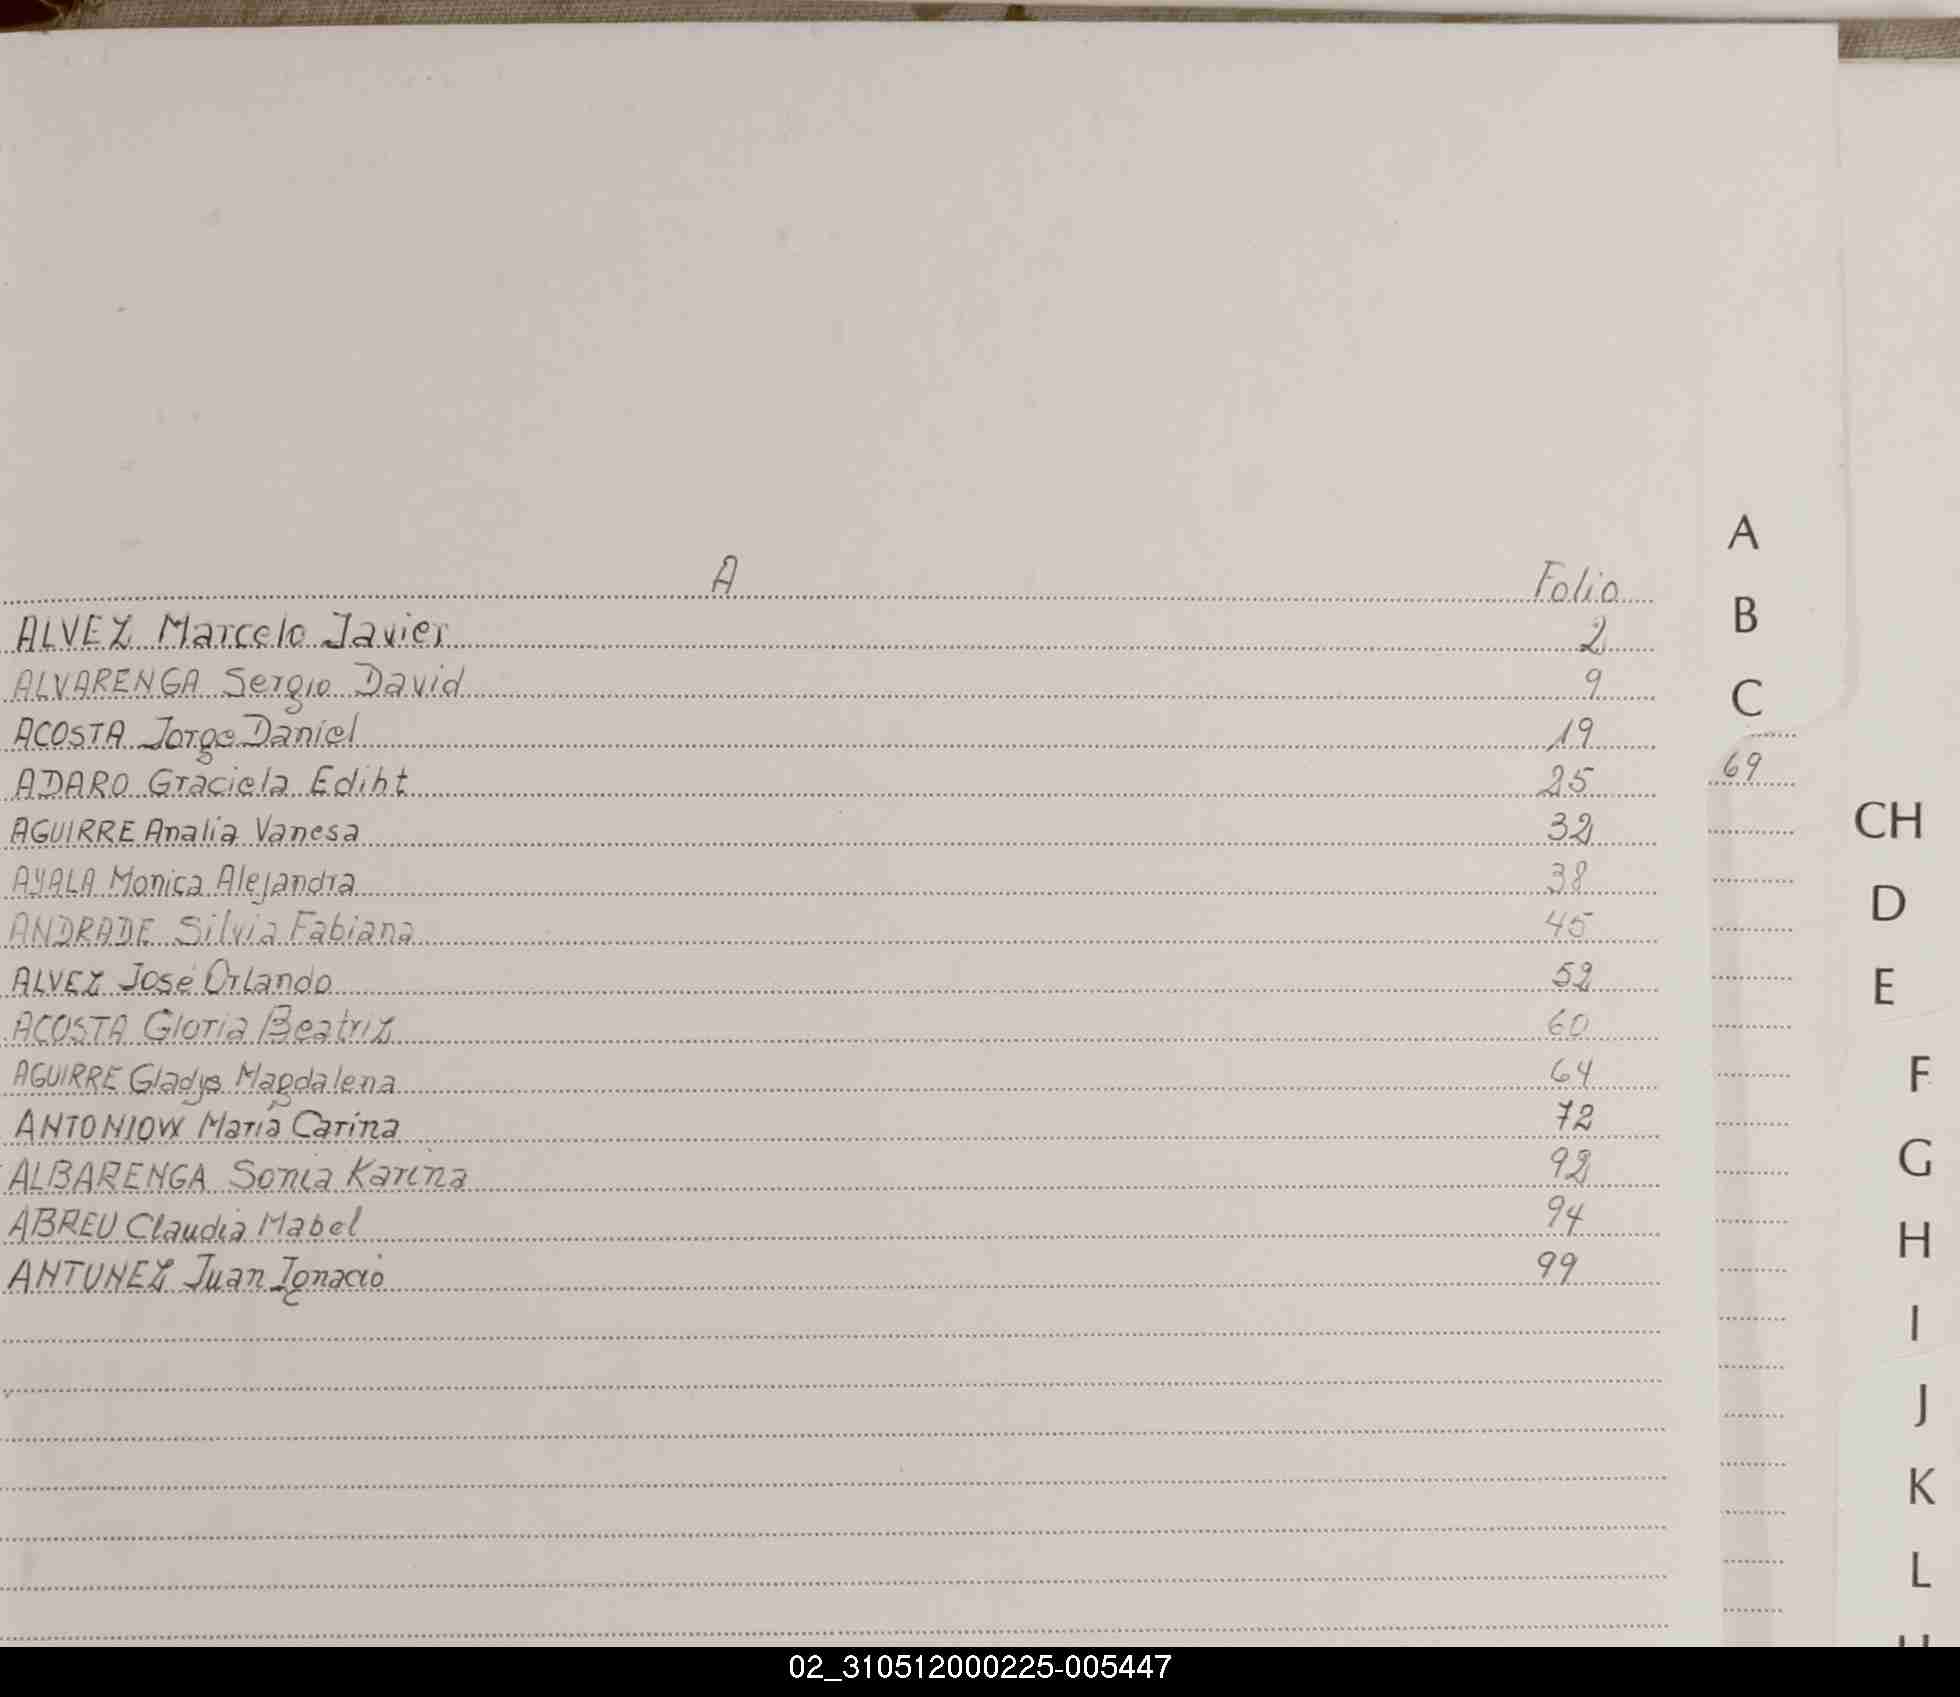 A Folio
ALVEZ Marcelo Javier 2
ALVARENGA Sergio David 9
ACOSTA Jorge Daniel 19
ADARO Graciela Ediht 25
AGUIRRE Analia Vanesa 32
AYALA Monica Alejandra 38
ANDRADE Silvia Fabiana 45
ALVEZ José Orlando 52
ACOSTA Gloria Beatriz 60
AGUIRRE Gladys Magdalena 64
ANTONIOW María Carina 72
ALBARENGA Sonia Karina 92
ABREU Claudia Mabel 94
ANTUNEZ Juan Ignacio 99
A
B
C
69
CH
D
E
F
G
H
I
J
K
L
02_310512000225-005447